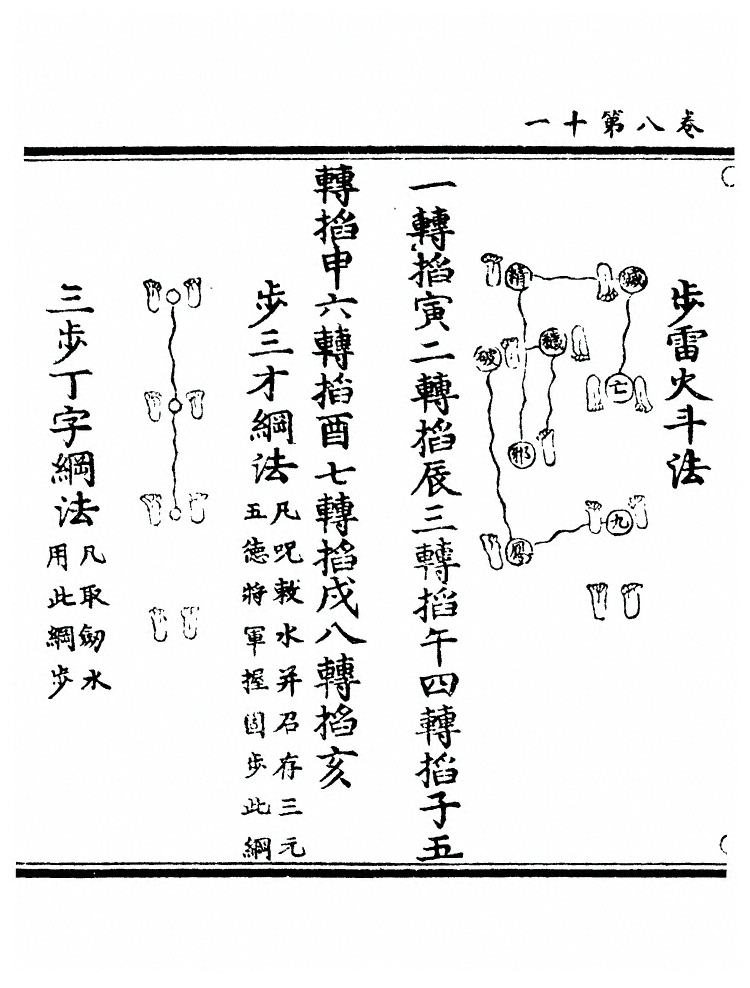 卷八第十一
步雷火斗法
九
鳳
破
穢
邪
精
滅
亡
一轉掐寅二轉掐辰三轉掐午四轉掐子五
轉掐申六轉掐酉七轉掐戌八轉掐亥
步三才綱法
凡呪敕水并召存三元
五德將軍握固步此綱
三步丁字綱法
凡取劒水
用此綱步